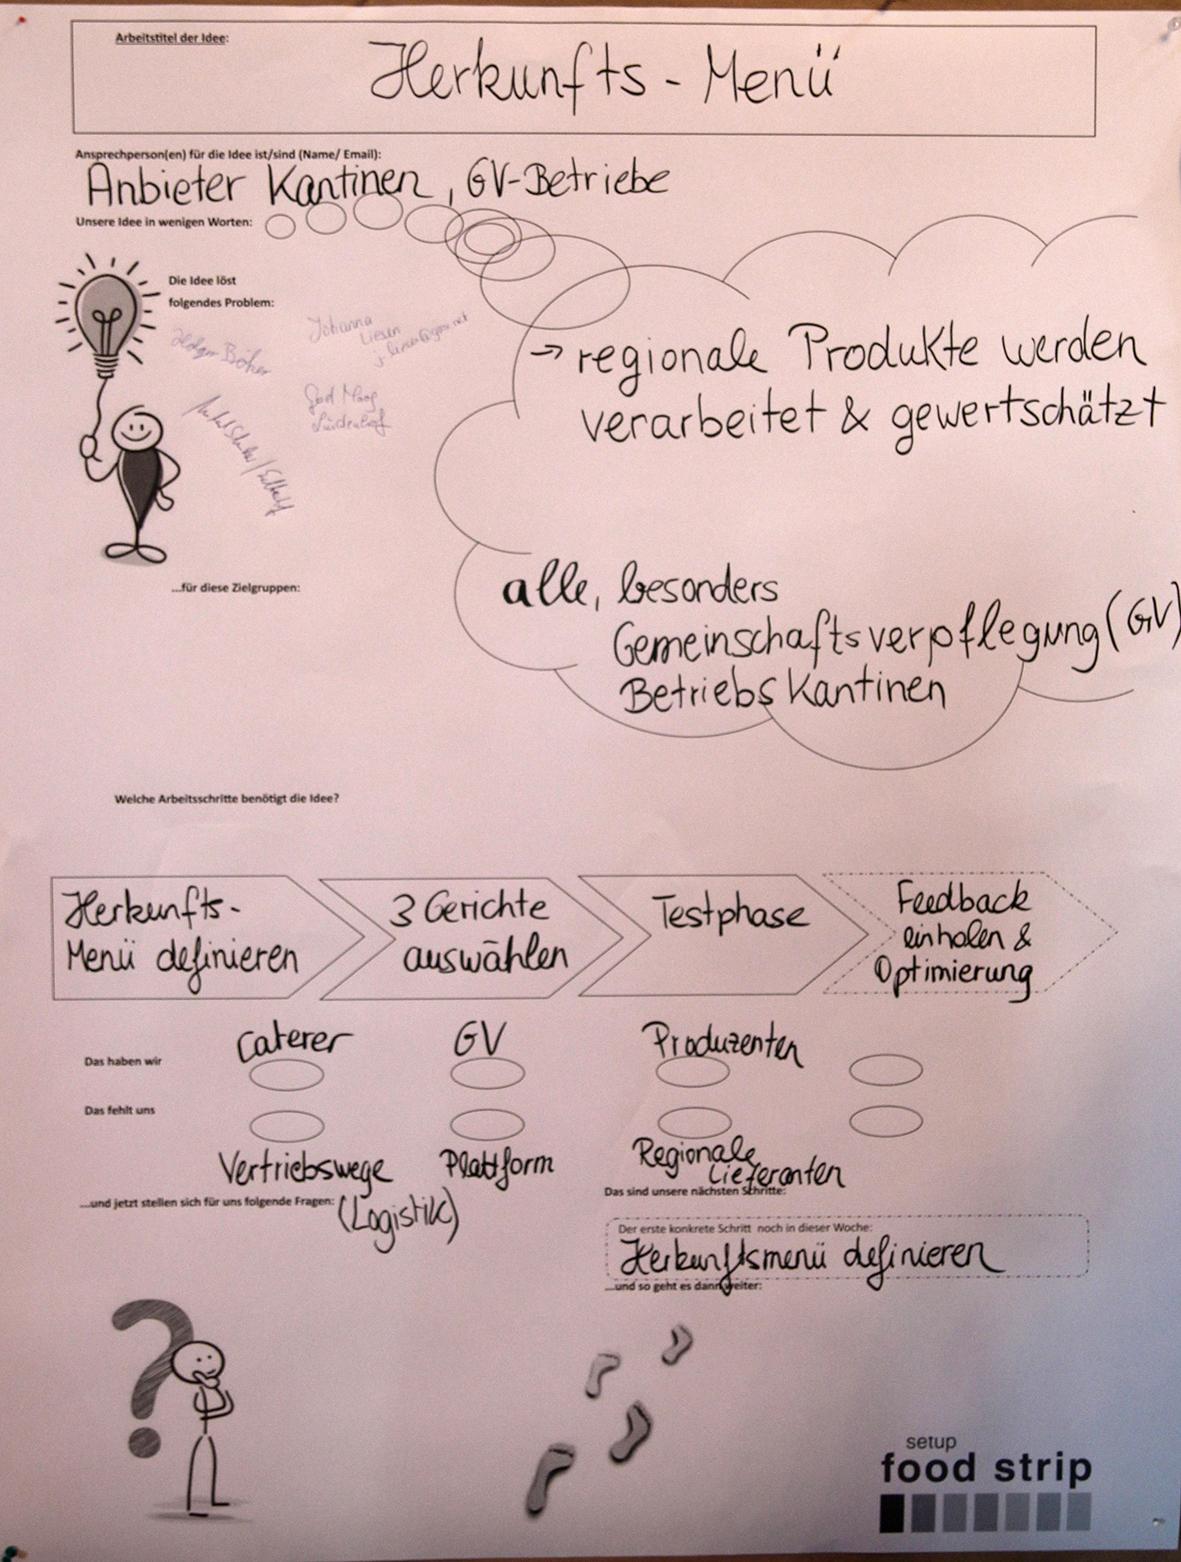 Arbeitstitel der Idee:
Herkunfts-Menü
Ansprechperson(en) für die Idee ist/sind (Name/ Email):
Anbieter Kantinen, GV-Betriebe
Unsere Idee in wenigen Worten:
Die Idee löst
folgendes Problem:
Johanna
→ regionale Produkte werden
verarbeitet & gewertschätzt
...für diese Zielgruppen:
alle, besonders
Gemeinschaftsverpflegung (GV)
Betriebskantinen
Welche Arbeitsschritte benötigt die Idee?
Herkunfts-
Menü definieren
3 Gerichte
auswählen
Testphase
Feedback
einholen &
Optimierung
Caterer GV Produzenten
Das haben wir
Das fehlt uns
Vertriebswege
(Logistik)
Plattform
Regionale
Lieferanten
...und jetzt stellen sich für uns folgende Fragen:
Das sind unsere nächsten Schritte:
Der erste konkrete Schritt noch in dieser Woche:
Herkunftsmenü definieren
...und so geht es dann weiter:
setup
food strip